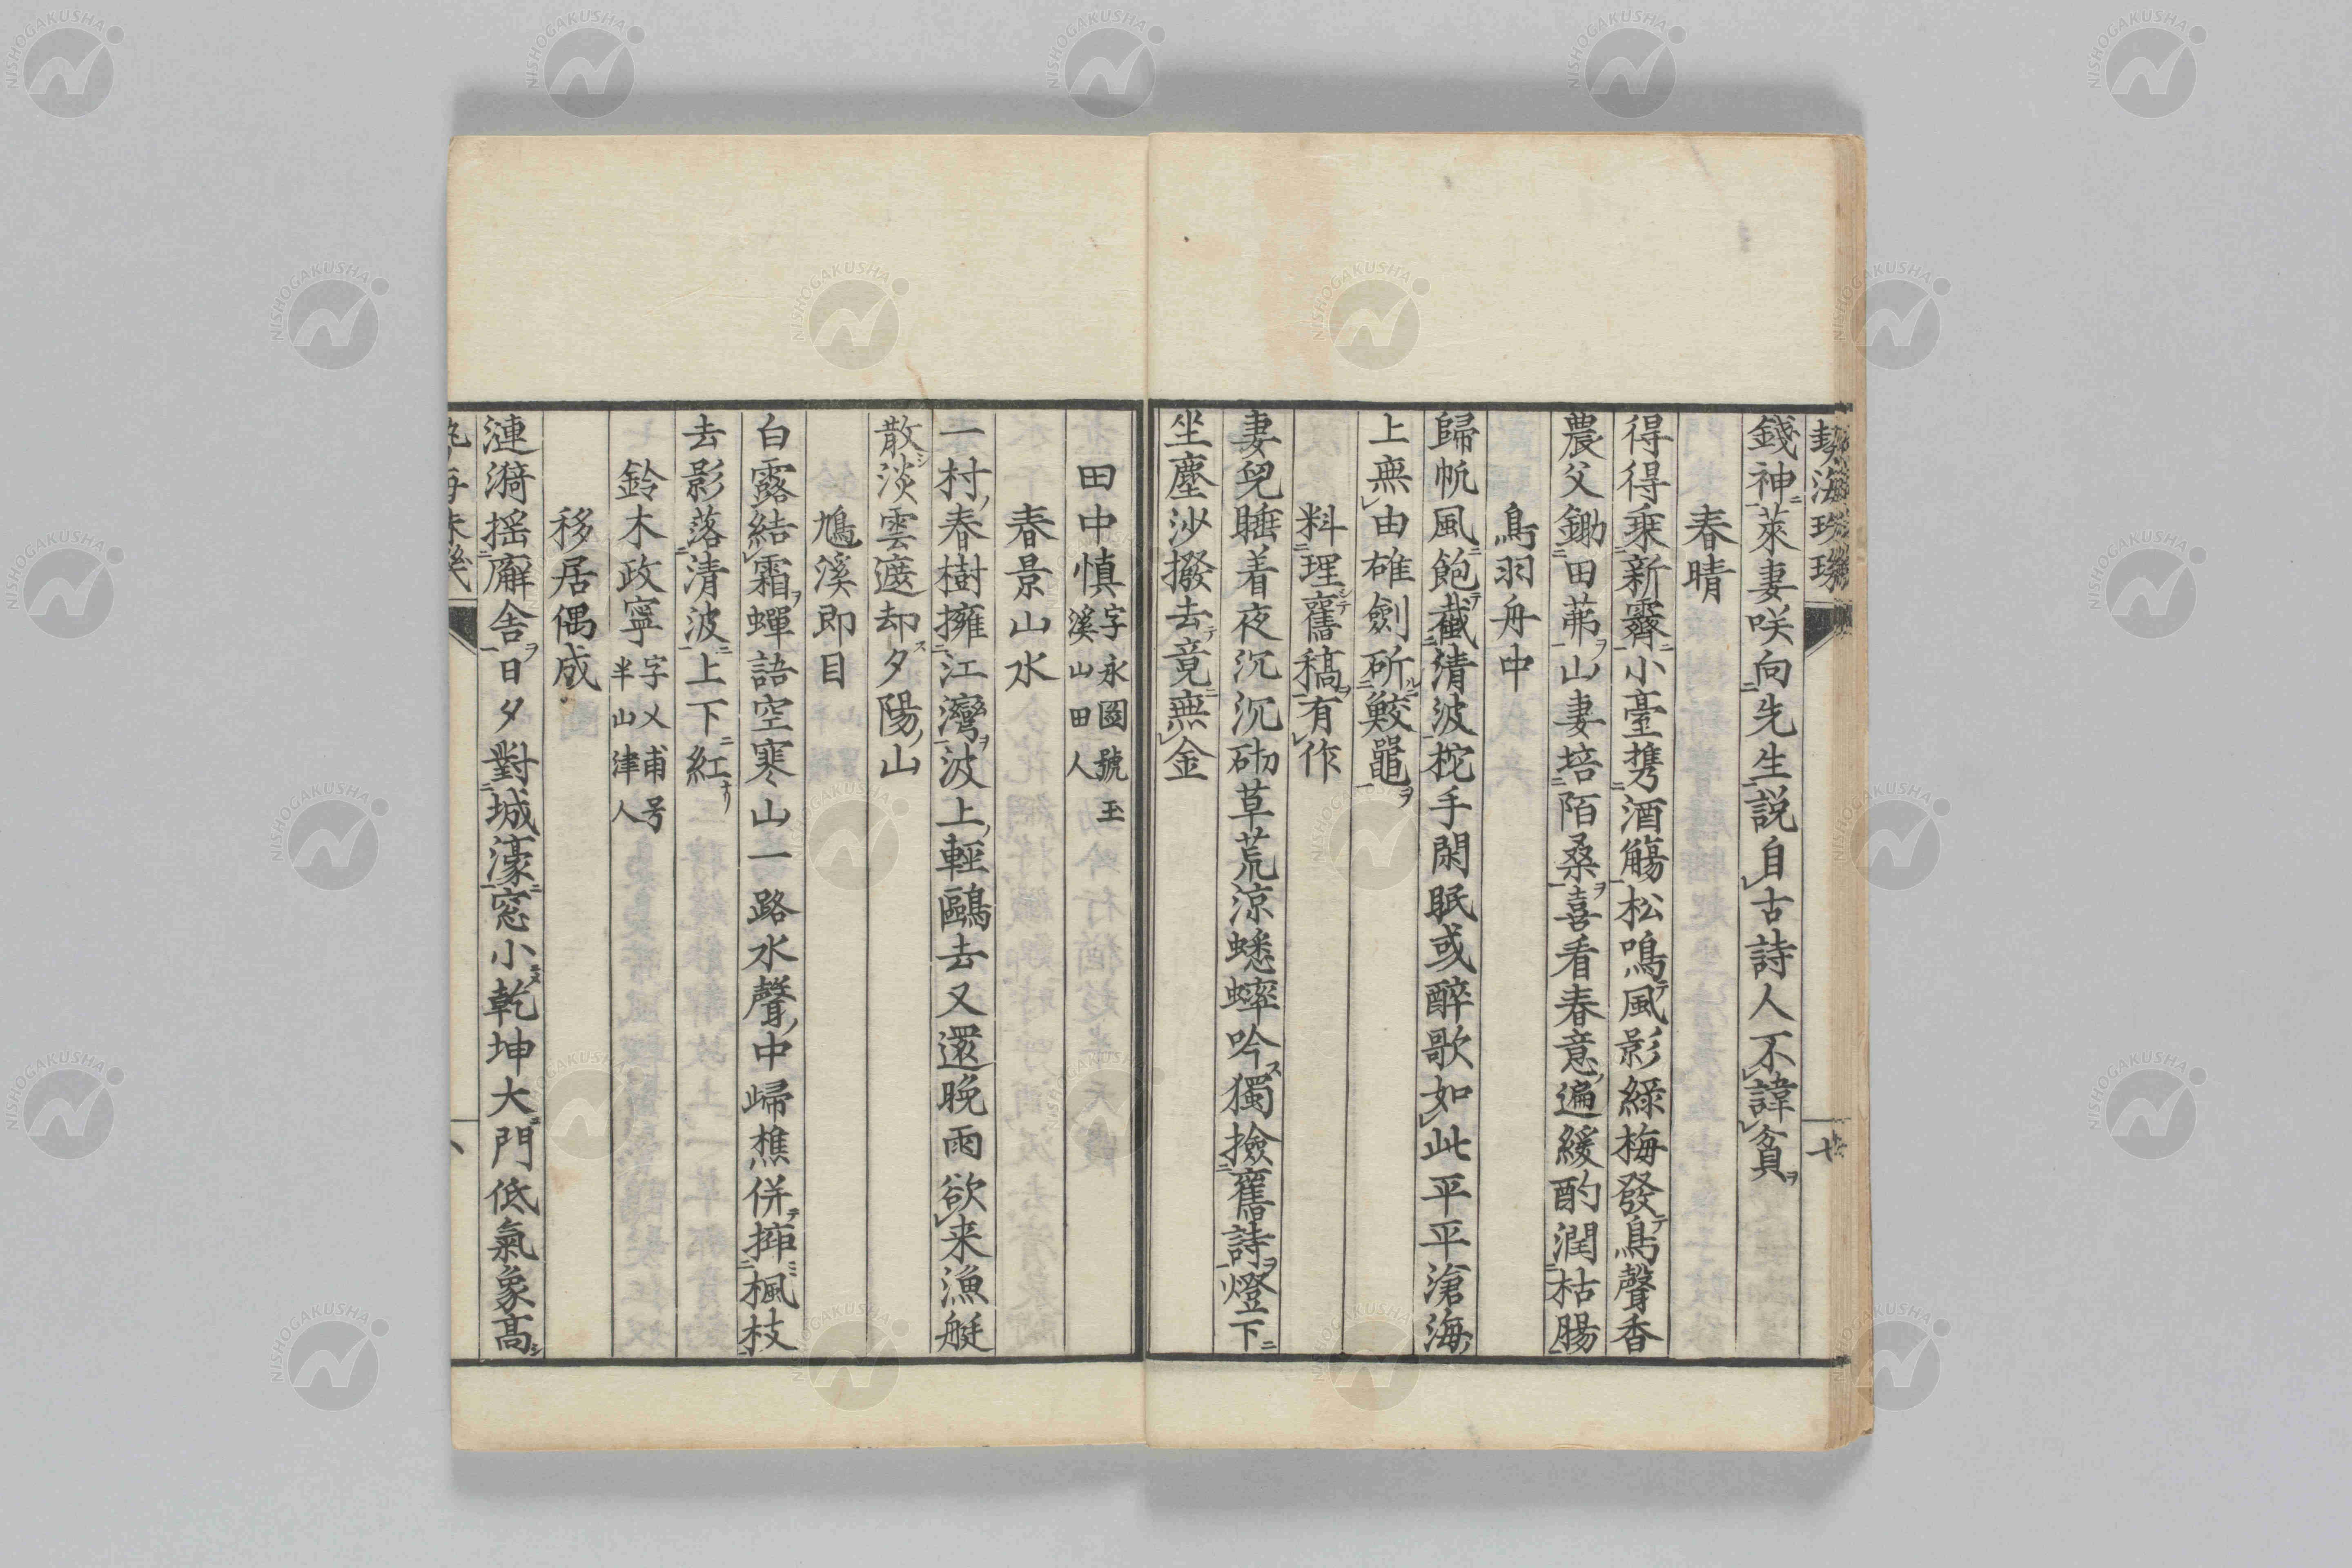 錢神萊妻咲向先生説自古詩人不諱貧
春晴
得得乗新霽小臺携酒觴松鳴風影綠梅發鳥聲香
農父鋤田茀山妻培陌桑喜看春意遍緩酌潤枯腸
鳥羽舟中
歸帆風飽截清波柁手閑眠或醉歌如此平平滄海
上無由碓劍斫鮫鼉
料理舊稿有作
妻兒睡着夜沉沉砌草荒涼蟋蟀吟獨撿舊詩燈下
坐塵沙撥去竟無金
田中慎字永圖號玉
溪山田人
春景山水
一村春樹擁江灣波上輕鷗去又還晚雨欲来漁艇
散淡雲遮却夕陽山
鳩溪即目
白露結霜蟬語空寒山一路水聲中歸樵併擔楓枝
去影落清波上下紅
鈴木政寧字乂甫号
半山津人
移居偶成
漣漪揺廨舎日夕對城濠窓小乾坤大門低氣象高